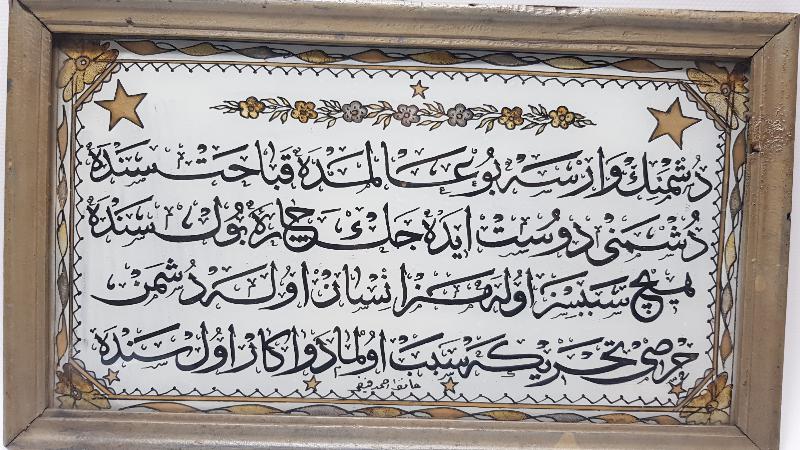 دُشمنِك وارسه بُو عالمده قباحت سنده
دُشمنی دوست ایده جك چاره بُول سنده
هیچ سببسز اوله مز انسان اوله دشمن
حرصی تحریكه سبب اولما دواكار اول سنده